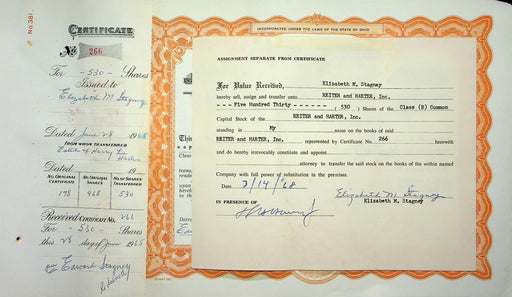 No. 381
CERTIFICATE
No 266
For - 530 - Shares
Issued to
Elizabeth M Stagney
Dated June 28 1965
FROM WHOM TRANSFERRED
Estate of Harry L.
Harter
Dated 19
NO. ORIGINAL CERTIFICATE
NO. ORIGINAL SHARES
NO. OF SHARES TRANSFERRED
178 968 530
Received CERTIFICATE No. 266
For - 530 - Shares
this 28 day of June 1965
Edward Stagney
INCORPORATED UNDER THE LAWS OF THE STATE OF OHIO
ASSIGNMENT SEPARATE FROM CERTIFICATE
For Value Received, Elizabeth M. Stagney
hereby sell, assign and transfer unto REITER and HARTER, Inc.
--- Five Hundred Thirty ------- ( 530 ) Shares of the Class (B) Common
Capital Stock of the REITER and HARTER, Inc.
standing in My name on the books of said
REITER and HARTER, Inc. represented by Certificate No. 266 herewith
and do hereby irrevocably constitute and appoint
attorney to transfer the said stock on the books of the within named
Company with full power of substitution in the premises.
Date 2/14/68
Elizabeth M. Stagney
Elizabeth M. Stagney
IN PRESENCE OF